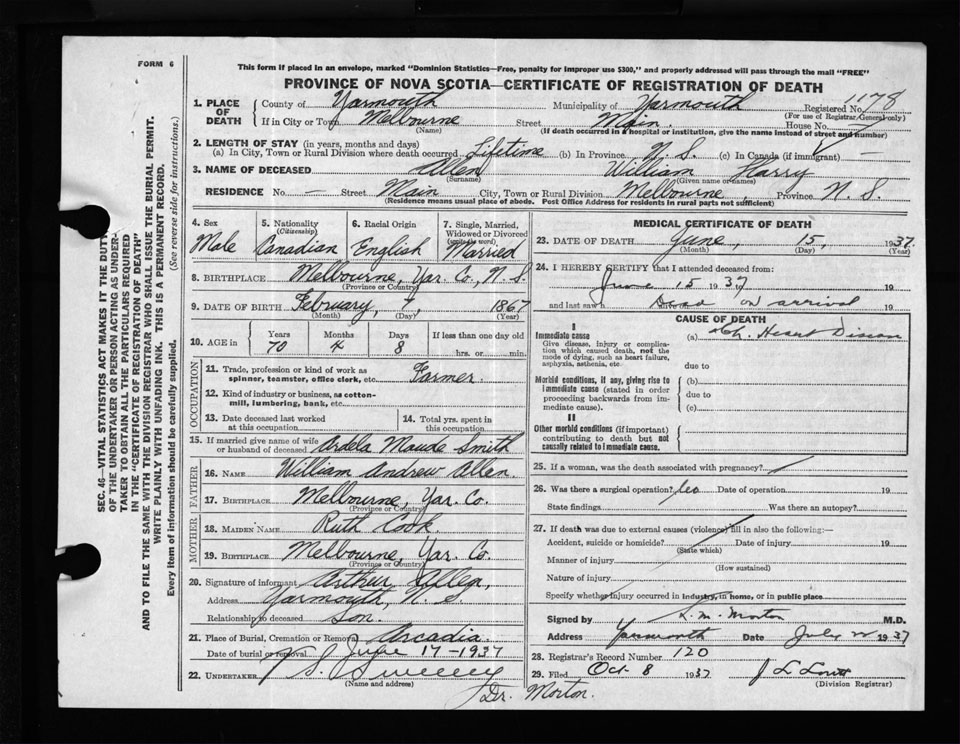 FORM 6
This form if placed in an envelope, marked "Dominion Statistics—Free, penalty for improper use $300," and properly addressed will pass through the mail "FREE"
PROVINCE OF NOVA SCOTIA—CERTIFICATE OF REGISTRATION OF DEATH
SEC. 46—VITAL STATISTICS ACT MAKES IT THE DUTY
OF THE UNDERTAKER OR PERSON ACTING AS UNDER-
TAKER TO OBTAIN ALL THE PARTICULARS REQUIRED
IN THE "CERTIFICATE OF REGISTRATION OF DEATH"
AND TO FILE THE SAME WITH THE DIVISION REGISTRAR WHO SHALL ISSUE THE BURIAL PERMIT.
WRITE PLAINLY WITH UNFADING INK. THIS IS A PERMANENT RECORD.
Every item of information should be carefully supplied. (See reverse side for instructions.)
1. PLACE OF DEATH County of Yarmouth Municipality of Yarmouth Registered No. 1178
(For use of Registrar General only)
If in City or Town Melbourne Street Main House No.
(Name) (If death occurred in a hospital or institution, give the name instead of street and number)
2. LENGTH OF STAY (in years, months and days)
(a) In City, Town or Rural Division where death occurred Lifetime (b) In Province N. S. (c) In Canada (if immigrant) —
3. NAME OF DECEASED Allen William Harry
(Surname) (Given name or names)
RESIDENCE No. — Street Main City, Town or Rural Division Melbourne, Province N. S.
(Residence means usual place of abode. Post Office Address for residents in rural parts not sufficient)
4. Sex 5. Nationality (Citizenship) 6. Racial Origin 7. Single, Married, Widowed or Divorced (write the word)
Male Canadian English Married
8. BIRTHPLACE Melbourne, Yar. Co., N. S.
(Province or Country)
9. DATE OF BIRTH February, 7, 1867
(Month) (Day) (Year)
10. AGE in Years Months Days If less than one day old
70 4 8 hrs. or min.
OCCUPATION
11. Trade, profession or kind of work as spinner, teamster, office clerk, etc. Farmer.
12. Kind of industry or business, as cotton-mill, lumbering, bank, etc.
13. Date deceased last worked at this occupation
14. Total yrs. spent in this occupation
15. If married give name of wife or husband of deceased Ardela Maude Smith
FATHER
16. NAME William Andrew Allen
17. BIRTHPLACE Melbourne, Yar. Co.
(Province or Country)
MOTHER
18. MAIDEN NAME Ruth Cook
19. BIRTHPLACE Melbourne, Yar. Co.
(Province or Country)
20. Signature of informant Arthur Allen,
Address Yarmouth, N. S
Relationship to deceased Son.
21. Place of Burial, Cremation or Removal Arcadia.
Date of burial or removal June 17-1937
22. UNDERTAKER V. S. Sweeney
(Name and address)
MEDICAL CERTIFICATE OF DEATH
23. DATE OF DEATH June, 15, 1937.
(Month) (Day) (Year)
24. I HEREBY CERTIFY that I attended deceased from:
June 15 1937 to 19
and last saw h Dead on arrival 19
CAUSE OF DEATH
I
Immediate cause
Give disease, injury or complication which caused death, not the mode of dying, such as heart failure, asphyxia, asthenia, etc.
(a) Ch. Heart Disease
due to
Morbid conditions, if any, giving rise to immediate cause (stated in order proceeding backwards from immediate cause).
(b)
due to
(c)
II
Other morbid conditions (if important) contributing to death but not causally related to immediate cause.
25. If a woman, was the death associated with pregnancy?
26. Was there a surgical operation? No Date of operation 19
State findings Was there an autopsy?
27. If death was due to external causes (violence) fill in also the following:—
Accident, suicide or homicide? Date of injury 19
(State which)
Manner of injury
(How sustained)
Nature of injury
Specify whether injury occurred in industry, in home, or in public place
Signed by S. M. Morton M.D.
Address Yarmouth Date July 1937
28. Registrar's Record Number 120
29. Filed Oct 8 1937
(Division Registrar)
Dr. Morton.